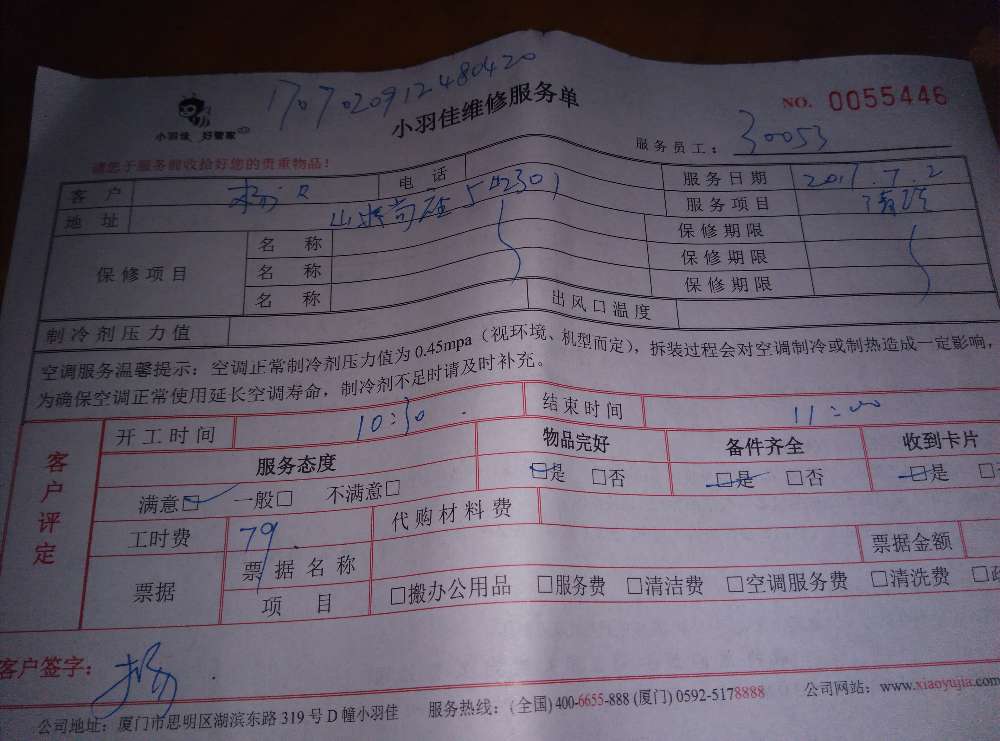 1707020912480420
小羽佳 好管家
小羽佳维修服务单
NO. 0055446
服务员工: 30053
请您于服务前收拾好您的贵重物品!
客 户 杨 电 话 服务日期 2017.7.2
地 址 山水尚座 2301 服务项目 清洗
保修项目 名 称 保修期限
名 称 保修期限
名 称 保修期限
制冷剂压力值 出风口温度
空调服务温馨提示: 空调正常制冷剂压力值为0.45mpa(视环境、机型而定), 拆装过程会对空调制冷或制热造成一定影响,
为确保空调正常使用延长空调寿命, 制冷剂不足时请及时补充。
客户评定
开工时间 10:30 结束时间 11:00
服务态度 物品完好 备件齐全 收到卡片
满意☑ 一般□ 不满意□ ☑是 □否 ☑是 □否 ☑是
工时费 79 代购材料费
票据 票据名称 票据金额
项 目 □搬办公用品 □服务费 □清洁费 □空调服务费 □清洗费
客户签字: 杨
公司地址: 厦门市思明区湖滨东路 319 号 D 幢小羽佳 服务热线: (全国) 400-6655-888 (厦门) 0592-5178888 公司网站: www.xiaoyujia.com